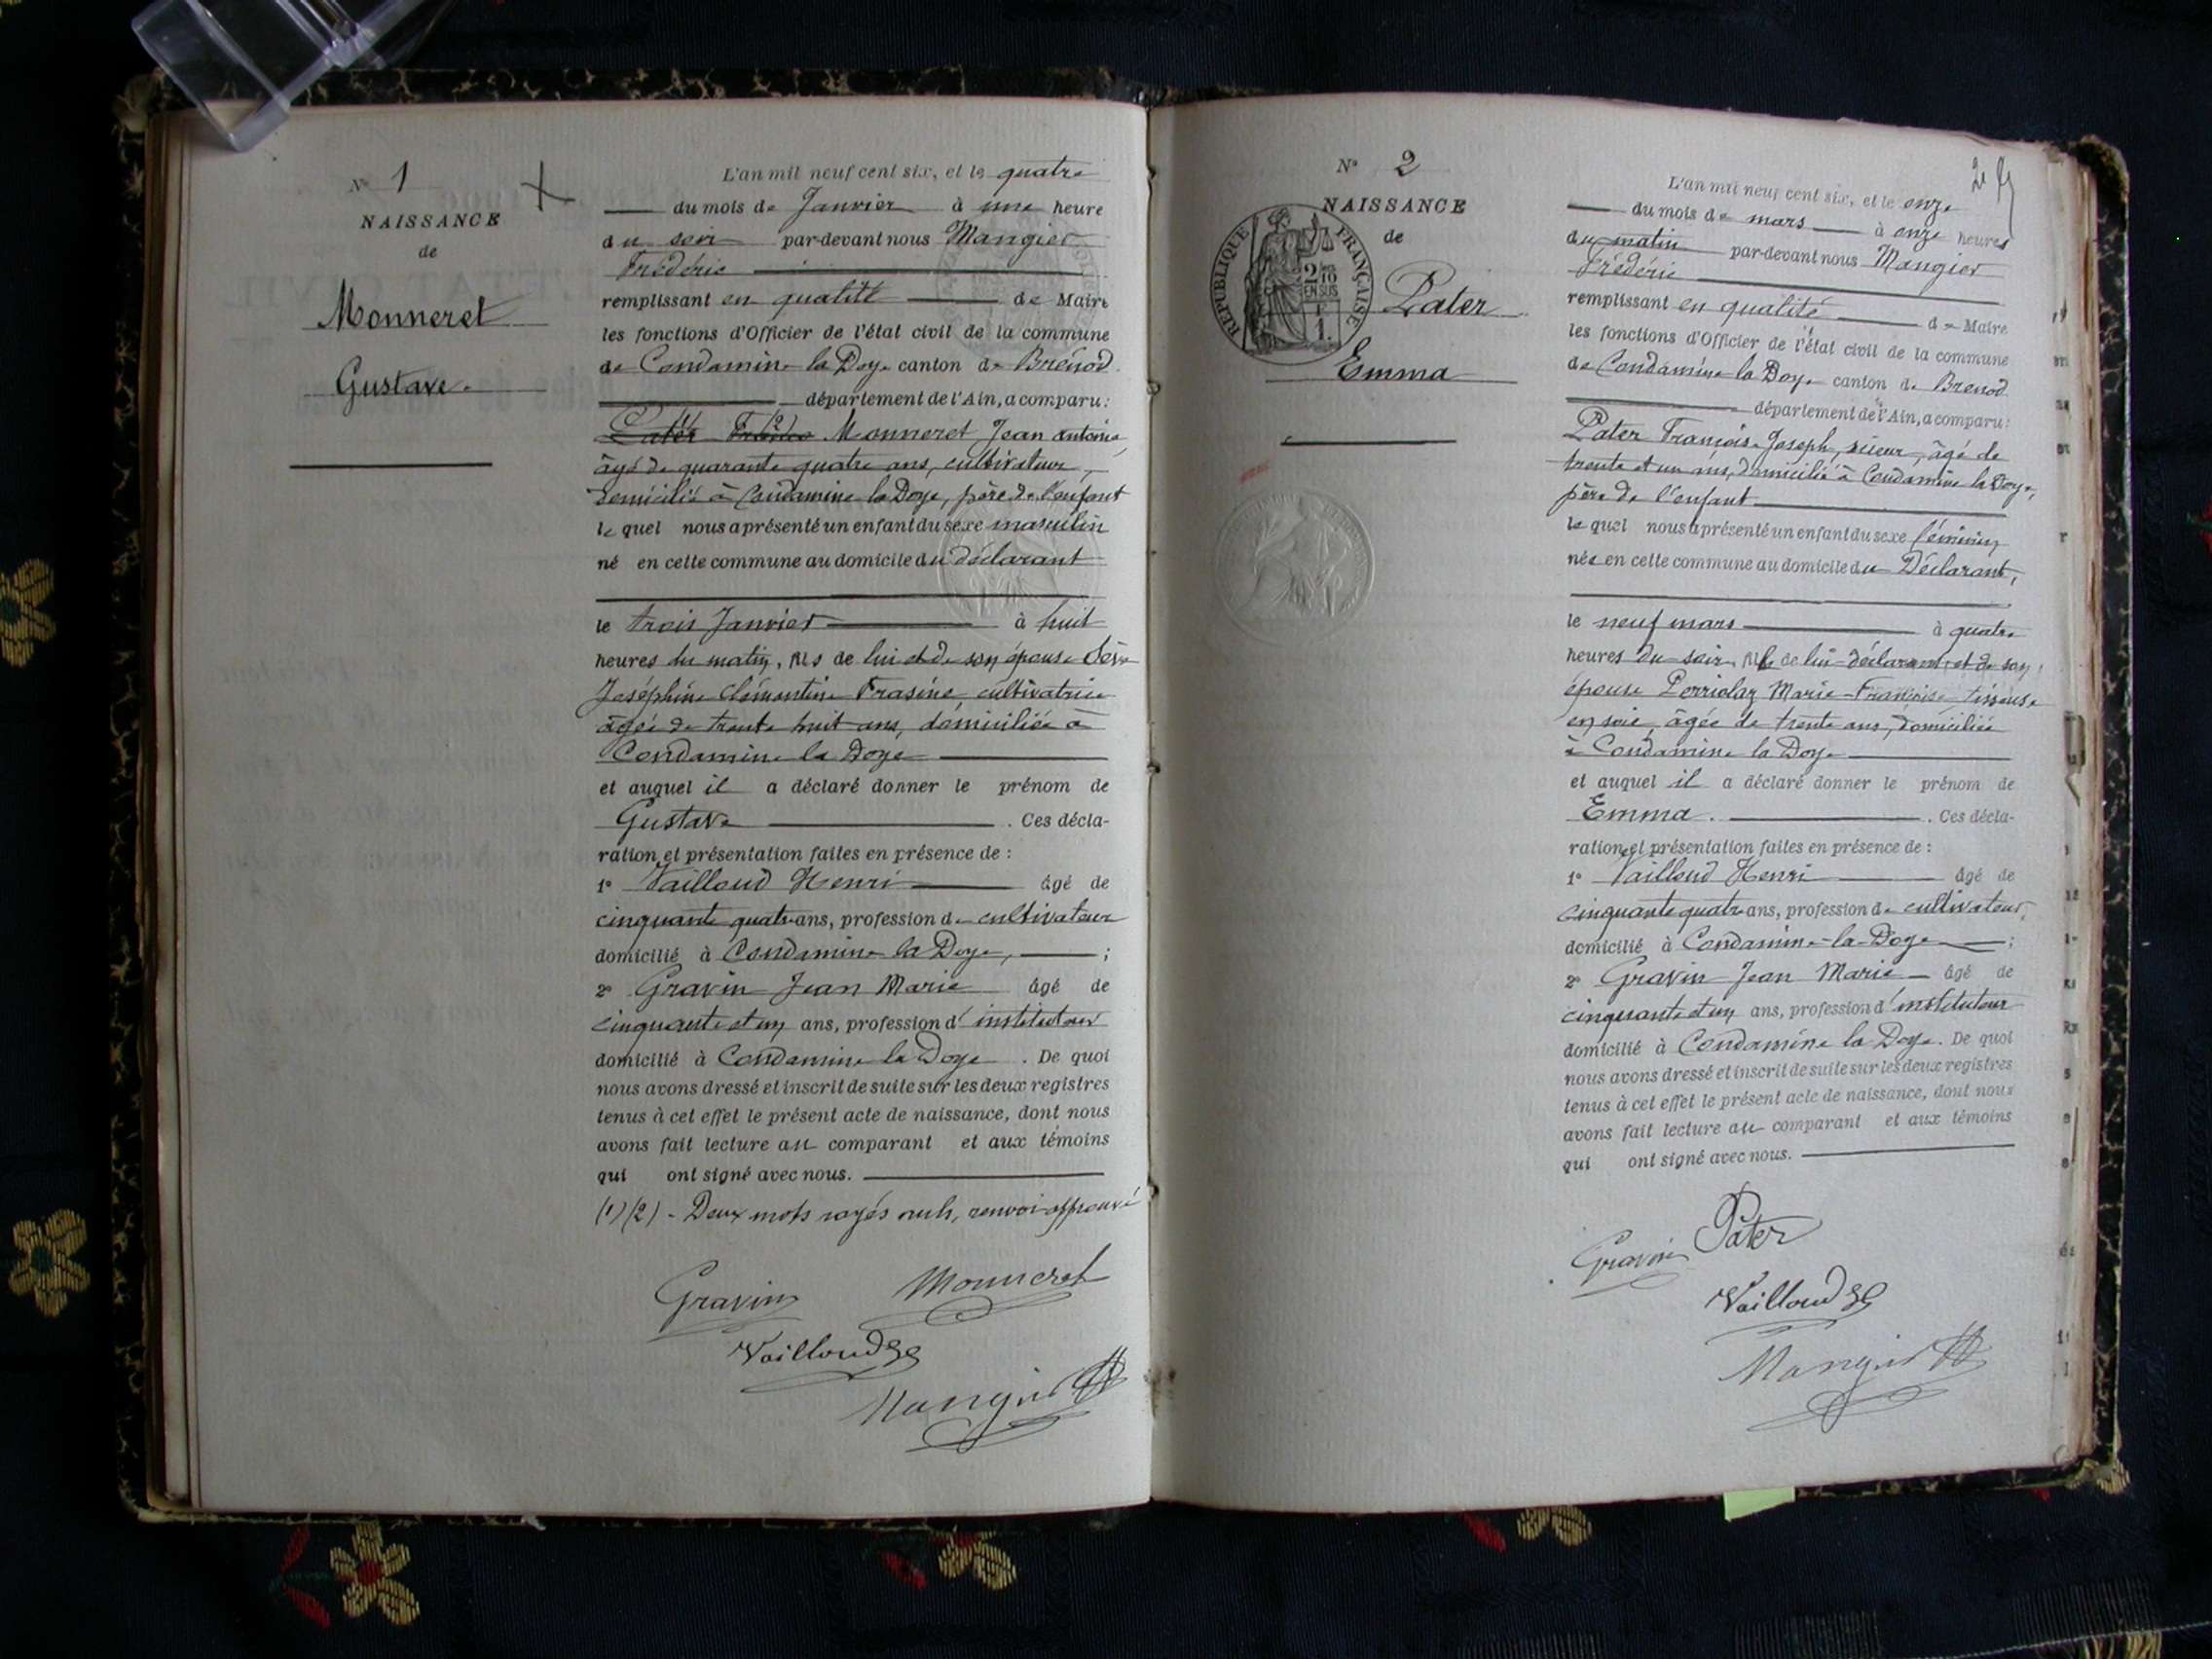 N° 1
NAISSANCE
de
Monneret
Gustave.
L'an mil neuf cent six, et le quatre
du mois de Janvier à une heure
du soir par-devant nous Mangier
Frédéric
remplissant en qualité de Maire
les fonctions d'Officier de l'état civil de la commune
de Condamine la Doye canton de Brénod
département de l'Ain, a comparu:
(1) (2) Monneret Jean antoine,
âgé de quarante quatre ans, cultivateur,
domicilié à Condamine la Doye, père de l'enfant
le quel nous a présenté un enfant du sexe masculin
né en cette commune au domicile du déclarant
le trois Janvier à huit
heures du matin, fils de lui et de son épouse
Joséphine Clémentine Frasine cultivatrice
âgée de trente huit ans, domiciliée à
Condamine la Doye
et auquel il a déclaré donner le prénom de
Gustave . Ces décla-
ration et présentation faites en présence de :
1° Vailloud Henri âgé de
cinquante quatre ans, profession de cultivateur
domicilié à Condamine la Doye, ;
2° Gravin Jean Marie âgé de
cinquante et un ans, profession d'instituteur
domicilié à Condamine la Doye . De quoi
nous avons dressé et inscrit de suite sur les deux registres
tenus à cet effet le présent acte de naissance, dont nous
avons fait lecture au comparant et aux témoins
qui ont signé avec nous.
(1) (2) - Deux mots rayés nuls, renvoi approuvé
Gravin Monneret
Vailloud H
Mangier
N° 2
NAISSANCE
de
RÉPUBLIQUE FRANÇAISE
2/10
EN SUS
1 F
Pater
Emma
2e
L'an mil neuf cent six, et le onze
du mois de mars à onze heures
du matin par-devant nous Mangier
Frédéric
remplissant en qualité de Maire
les fonctions d'Officier de l'état civil de la commune
de Condamine la Doye canton de Brenod
département de l'Ain, a comparu:
Pater François-Joseph, scieur, âgé de
trente et un ans, domicilié à Condamine la Doye,
père de l'enfant
le quel nous a présenté un enfant du sexe féminin
née en cette commune au domicile du Déclarant,
le neuf mars à quatre
heures du soir, fille de lui déclarant et de son
épouse Perriolaz Marie-Françoise tisseuse
en soie, âgée de trente ans, domiciliée
à Condamine la Doye
et auquel il a déclaré donner le prénom de
Emma. . Ces décla-
ration et présentation faites en présence de :
1° Vailloud Henri âgé de
cinquante quatre ans, profession de cultivateur,
domicilié à Condamine-la-Doye ;
2° Gravin Jean Marie âgé de
cinquante et un ans, profession d'instituteur
domicilié à Condamine la Doye. De quoi
nous avons dressé et inscrit de suite sur les deux registres
tenus à cet effet le présent acte de naissance, dont nous
avons fait lecture au comparant et aux témoins
qui ont signé avec nous.
Gravin Pater
Vailloud H
Mangier